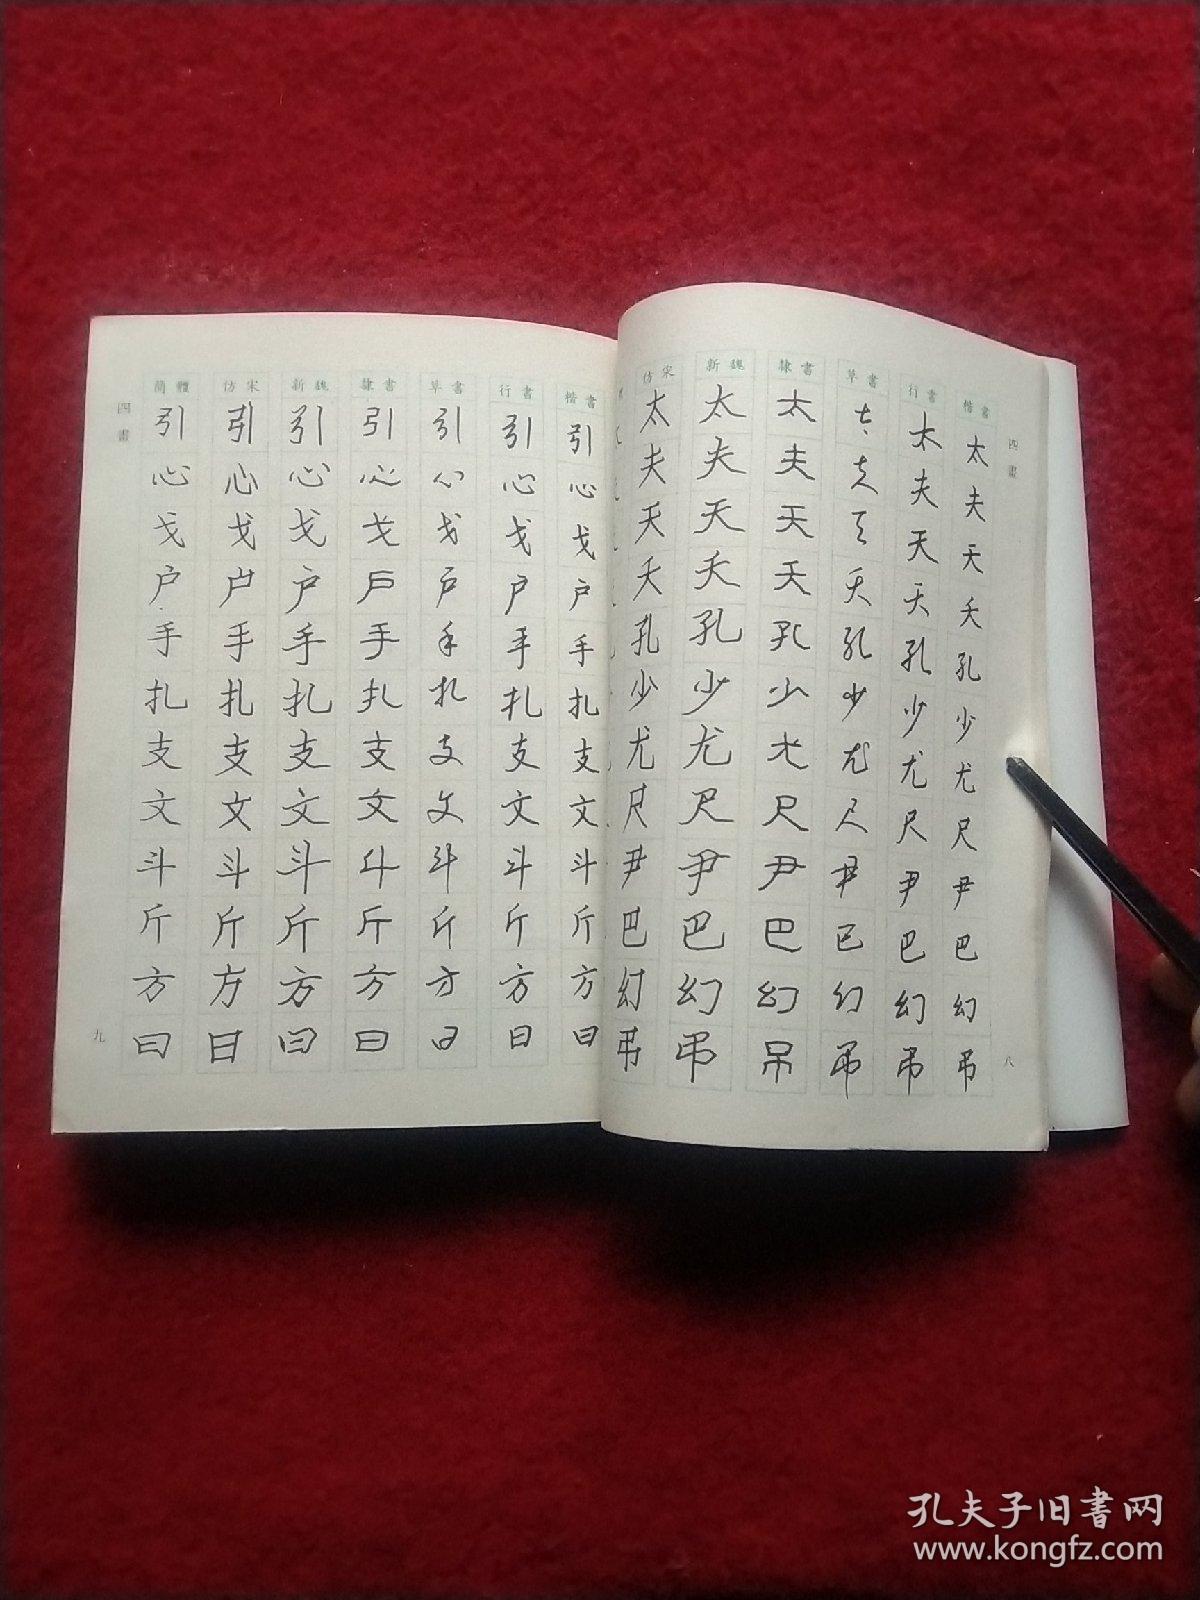 四畫
楷書 行書 草書 隸書 新魏 仿宋
太 太 太 太 太 太
夫 夫 夫 夫 夫 夫
天 天 天 天 天 天
夭 夭 夭 夭 夭 夭
孔 孔 孔 孔 孔 孔
少 少 少 少 少 少
尤 尤 尤 尤 尤 尤
尺 尺 尺 尺 尺 尺
尹 尹 尹 尹 尹 尹
巴 巴 巴 巴 巴 巴
幻 幻 幻 幻 幻 幻
弔 弔 弔 吊 弔 弔
八
楷書 行書 草書 隸書 新魏 仿宋 簡體
引 引 引 引 引 引 引
心 心 心 心 心 心 心
戈 戈 戈 戈 戈 戈 戈
户 户 户 戶 户 户 户
手 手 手 手 手 手 手
扎 扎 扎 扎 扎 扎 扎
支 支 支 支 支 支 支
文 文 文 文 文 文 文
斗 斗 斗 斗 斗 斗 斗
斤 斤 斤 斤 斤 斤 斤
方 方 方 方 方 方 方
曰 曰 曰 曰 曰 曰 曰
四畫
九
孔夫子旧書网
www.kongfz.com